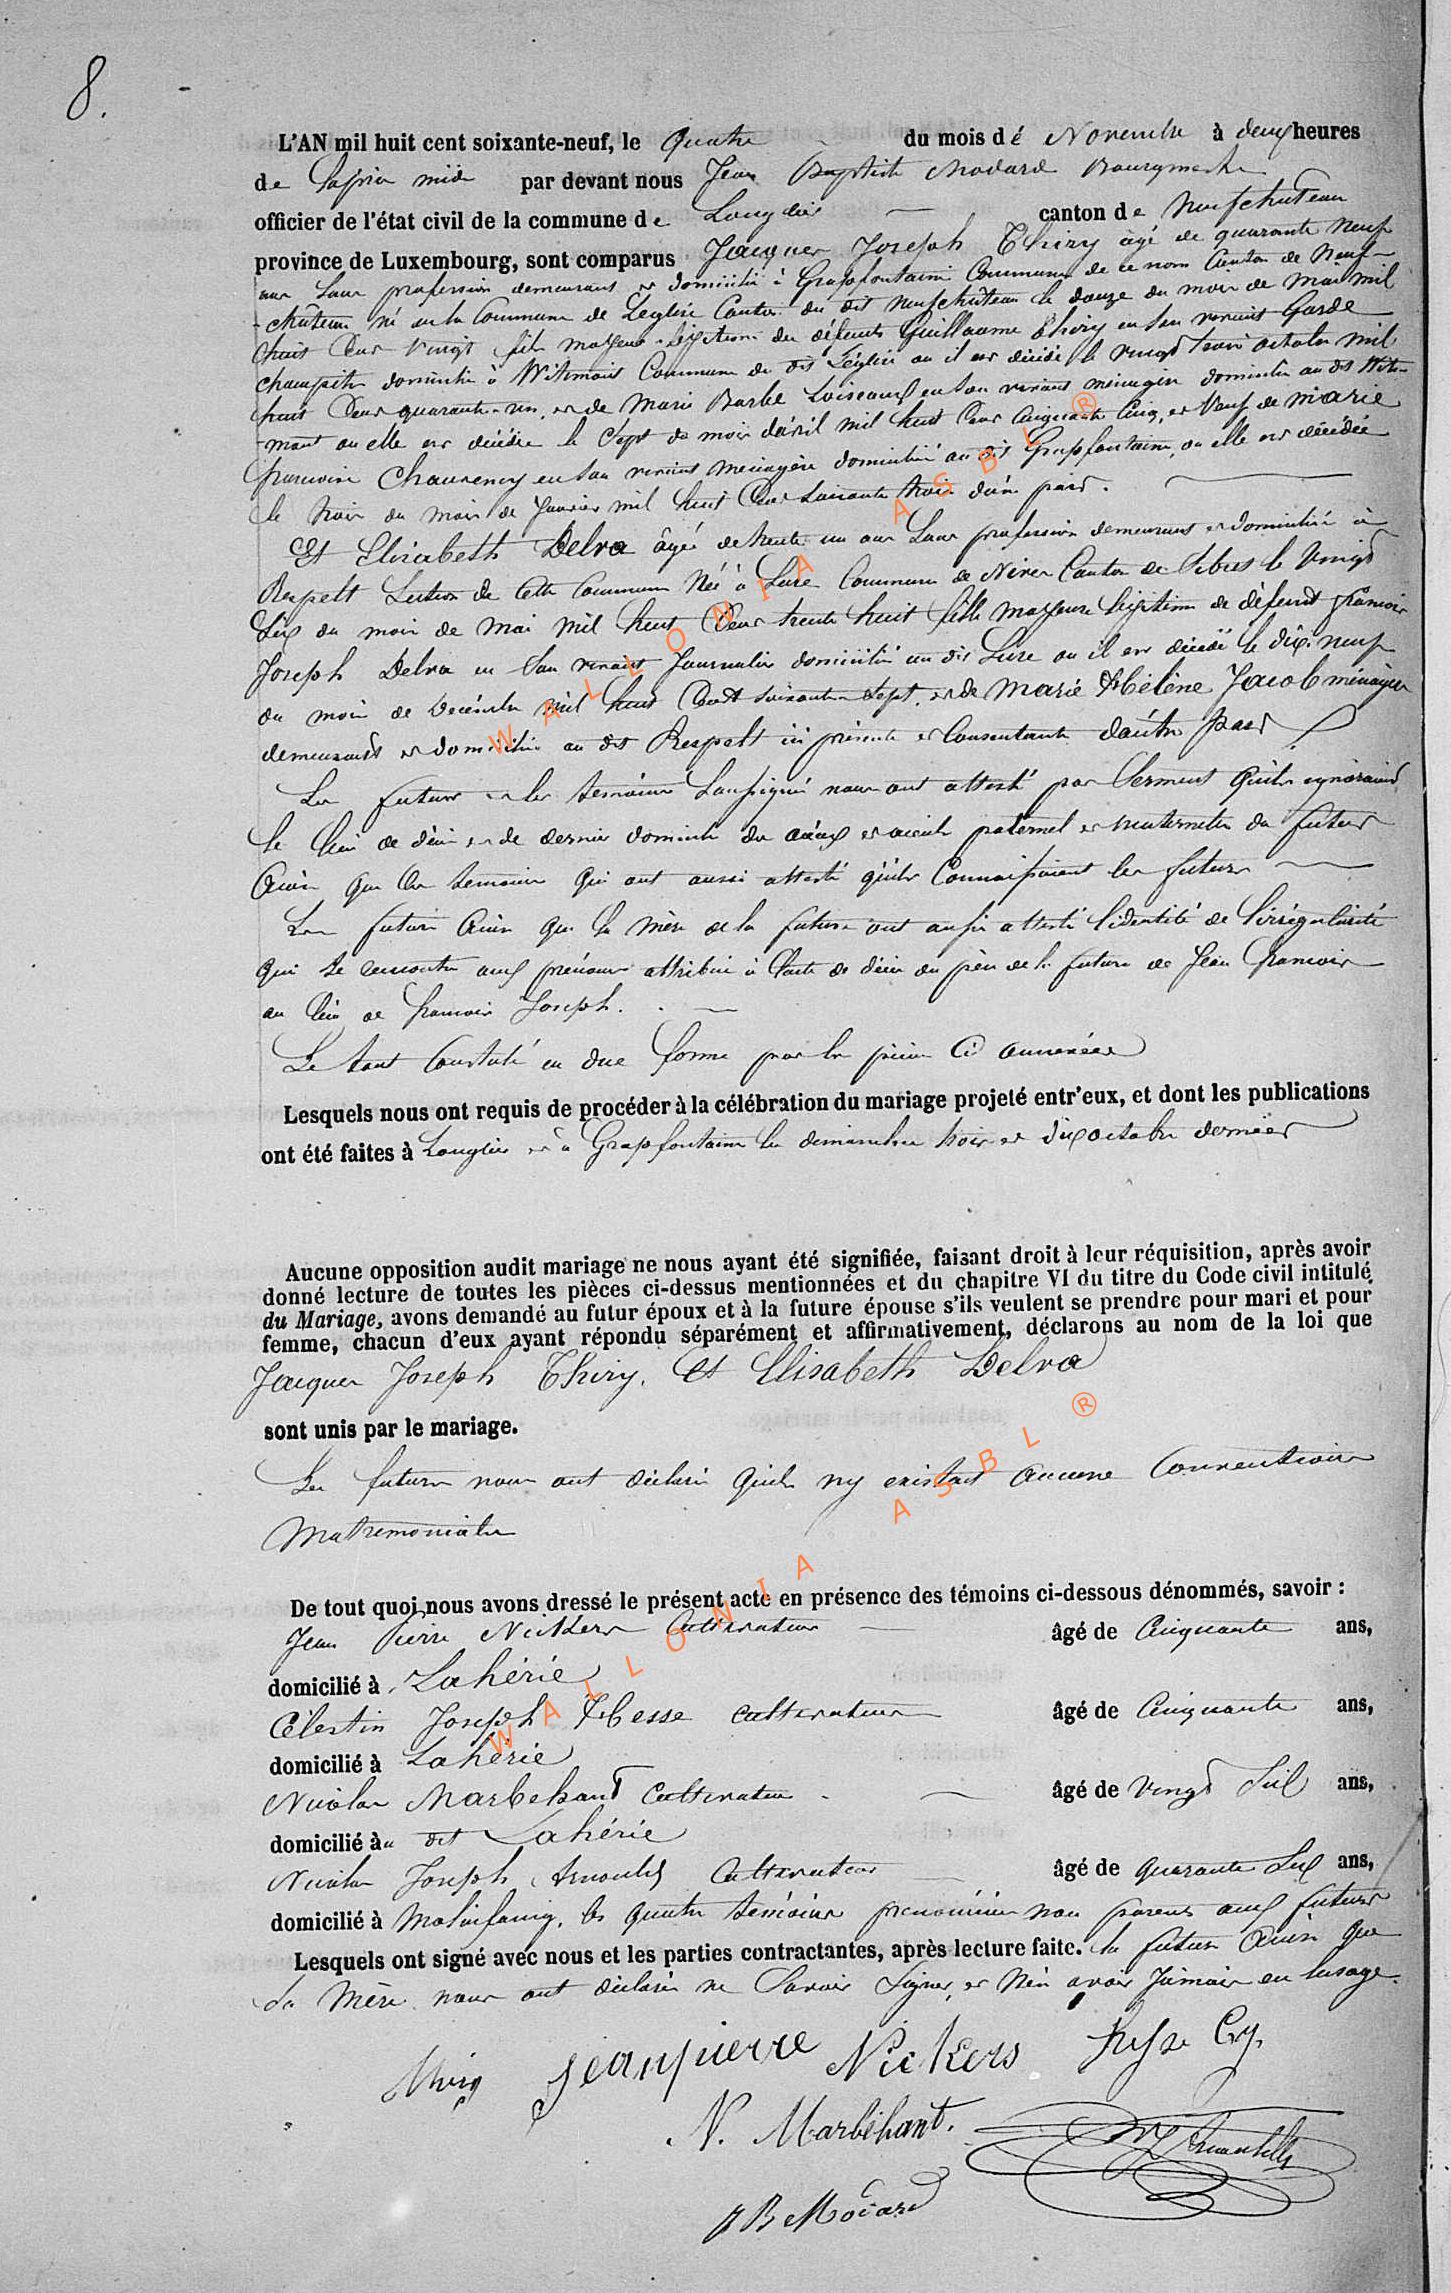 8.
L'AN mil huit cent soixante-neuf, le quatre du mois de Novembre à deux heures
de l'après midi par devant nous Jean Baptiste Modard Bourgmestre
officier de l'état civil de la commune de Longlier canton de Neufchateau
province de Luxembourg, sont comparus Jacques Joseph Thiry âgé de quarante neuf
ans sans profession demeurant et domicilié à Grapfontaine Commune de ce nom Canton de Neuf-
-château né en la Commune de Léglise Canton du dit neufchâteau le douze du mois de Mai mil
huit Cent vingt fils majeur légitime des défunts Guillaume Thiry en son vivant Garde
champêtre domicilié à Witimont Commune du dit Léglise où il est décédé le vingt trois octobre mil
huit Cent quarante-un, et de Marie Barbe Loiseaux en son vivant ménagère domiciliée au dit Witi-
-mont où elle est décédée le Sept du mois d'avril mil huit Cent Cinquante Cinq, et Veuf de marie
françoise Chauvency en son vivant ménagère domiciliée au dit Grapfontaine, où elle est décédée
le trois du mois de Janvier mil huit Cent soixante trois d'une part.
Et Elisabeth Delva âgée de trente un ans Sans profession demeurant et domiciliée à
Respelt Section de Cette Commune Née à Lure Commune de Nives Canton de Sibret le Vingt
Six du mois de Mai mil huit Cent trente huit fille majeure légitime de défunt françois
Joseph Delva en Son vivant Journalier domicilié au dit Lure où il est décédé le dix-neuf
du mois de Décembre mil huit Cent soixante Sept, et de Marie Hélène Jacob ménagère
demeurant et domiciliée au dit Respelt ici présente et Consentante d'autre part
Les futurs et les témoins Soussignés nous ont attesté par Serment qu'ils ignoraient
le lieu de décès et de dernier domicile des aïeux et aïeules paternels et maternels du futur
Ainsi que les temoins qui ont aussi attesté qu'ils Connaissaient les futurs
Les futurs Ainsi que la mère de la future ont aussi attesté l'identité de l'irrégularité
qui se rencontre aux prénoms attribués à l'acte de décès du père de la future de Jean francois
au lieu de francois Joseph.
Le tout Constaté en due forme par les pièces Ci annexées
Lesquels nous ont requis de procéder à la célébration du mariage projeté entr'eux, et dont les publications
ont été faites à Longlier et à Grapfontaine les dimanches trois et dix octobre dernier
Aucune opposition audit mariage ne nous ayant été signifiée, faisant droit à leur réquisition, après avoir
donné lecture de toutes les pièces ci-dessus mentionnées et du chapitre VI du titre du Code civil intitulé
du Mariage, avons demandé au futur époux et à la future épouse s'ils veulent se prendre pour mari et pour
femme, chacun d'eux ayant répondu séparément et affirmativement, déclarons au nom de la loi que
Jacques Joseph Thiry, Et Elisabeth Delva
sont unis par le mariage.
Les futurs nous ont déclaré qu'ils ny existait aucune Conventions
Matrimoniales
De tout quoi nous avons dressé le présent acte en présence des témoins ci-dessous dénommés, savoir :
Jean Pierre Nickers Cultivateur âgé de Cinquante ans,
domicilié à Lahérie
Célestin Joseph Hesse cultivateur âgé de Cinquante ans,
domicilié à Lahérie
Nicolas Marbehant Cultivateur âgé de vingt Six ans,
domicilié au dit Lahérie
Nicolas Joseph Arnould Cultivateur âgé de quarante Six ans,
domicilié à Molinfaing, les quatre témoins prénommés non parents aux futurs
Lesquels ont signé avec nous et les parties contractantes, après lecture faite. la future Ainsi que
Sa Mère nous ont déclaré ne Savoir Signer, et N'en avoir Jamais eu lusage.
Thiry Jeanpierre Nickers
N. Marbéhant.
JB Modard
WALLONIA ASBL ®
WALLONIA ASBL ®